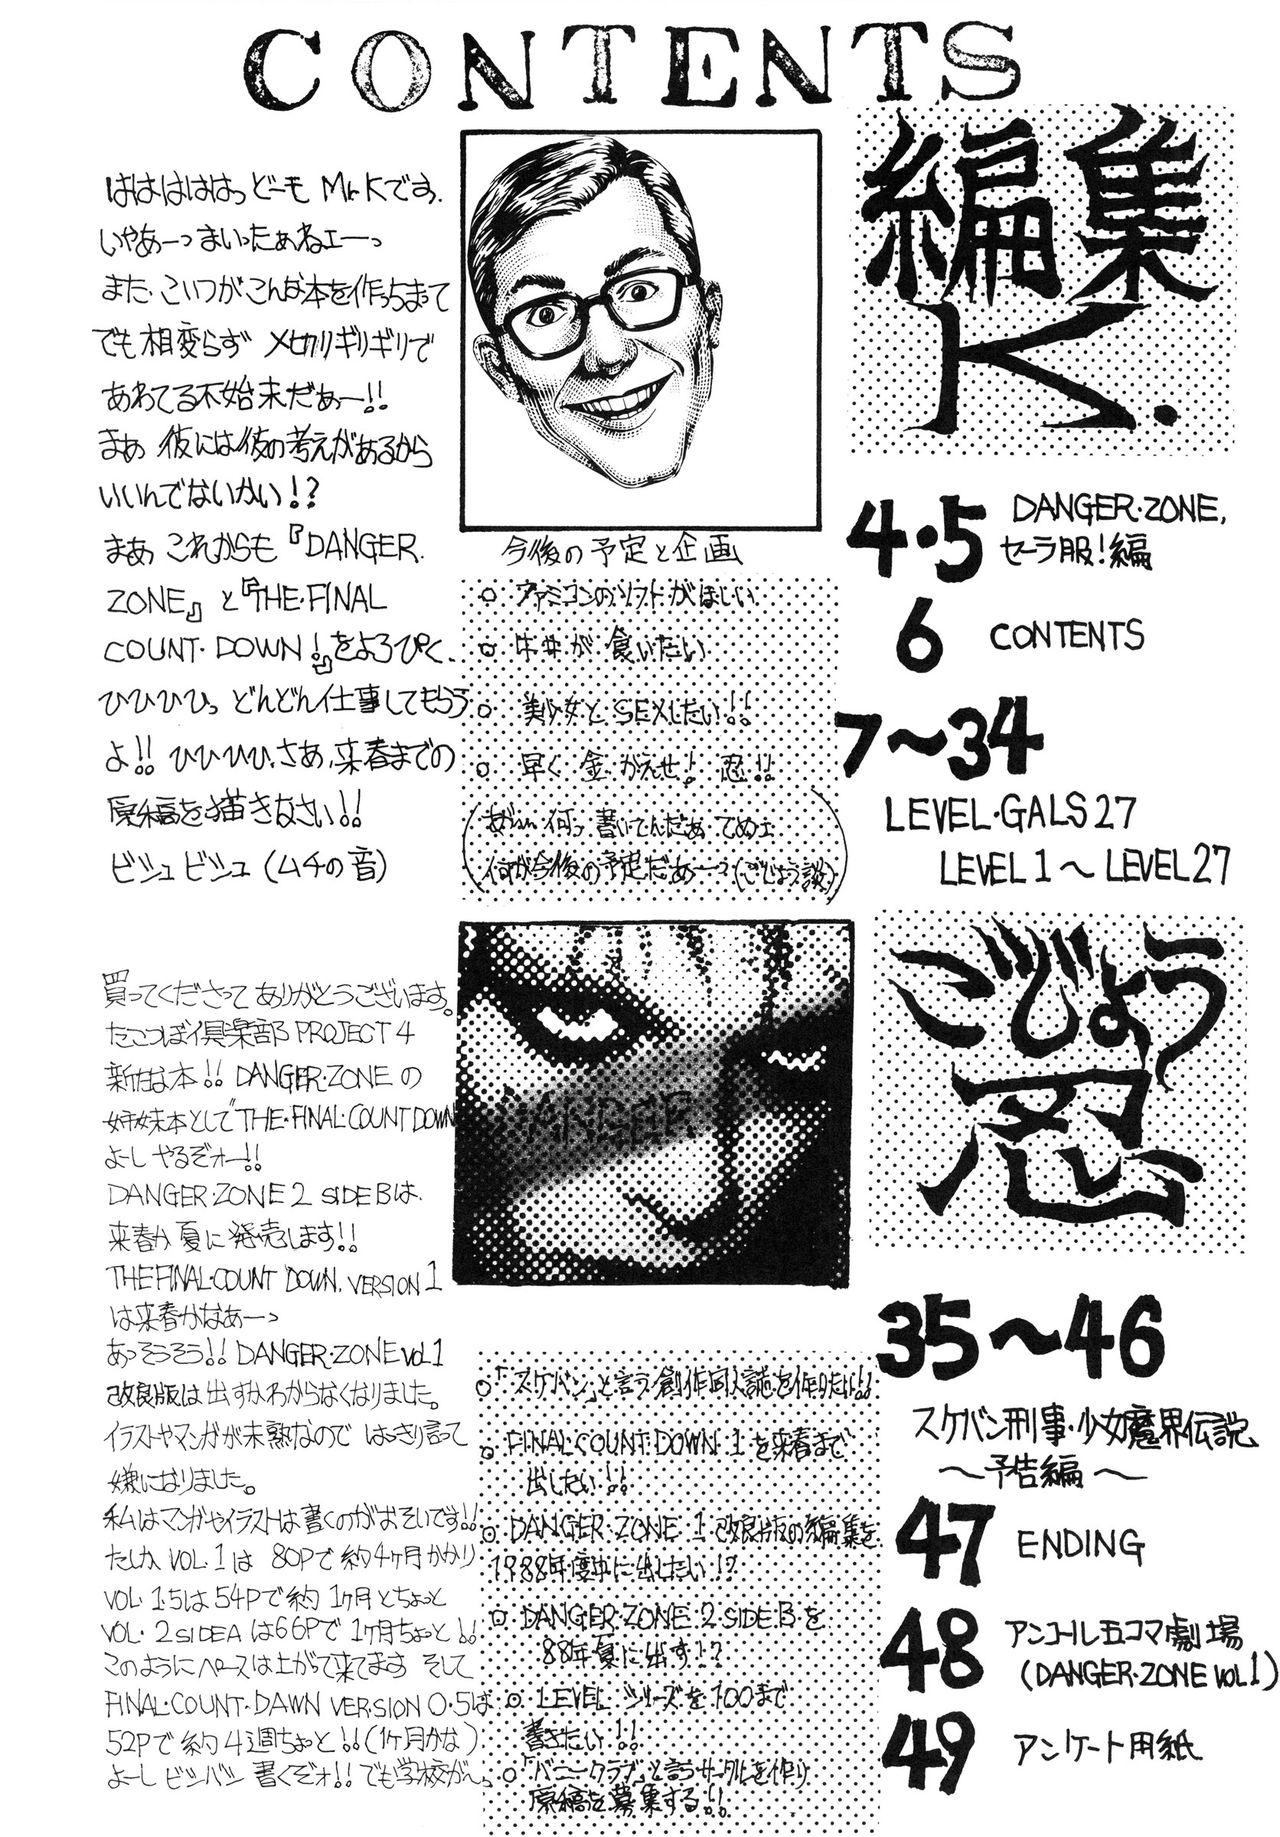 CONTENTS
編集
K.
はははははっどーも Mr.Kです.
いやあーっまいったぁねェーっ
また・こいつがこんな本を作っちまって
でも相変らず メ切りギリギリで
あわてる不始末だぁー!!
まぁ 彼には彼の考えがあるから
いいんでないかい!?
まあ これからも『DANGER.
ZONE』と『THE・FINAL
COUNT・DOWN!』をよろぴく.
ひひひひっ どんどん仕事してもらう
よ!! ひひひひ.さあ,来春までの
原稿を描きなさい!!
ビシュ ビシュ (ムチの音)
今後の予定と企画
○ ファミコンのソフトがほしい
○ 牛丼が食いたい
○ 美少女とSEXしたい!!
○ 早く金かえせ! 忍!!
何っ書いてんだぁてめェ
何が今後の予定だぁーっ (ごじょう談)
4・5 DANGER・ZONE,
セーラ服!編
6 CONTENTS
7〜34
LEVEL・GALS 27
LEVEL 1 〜 LEVEL 27
ごじょう
忍
買ってくださって ありがとうございます。
たこつぼ倶楽部 PROJECT 4
新たな本!! DANGER・ZONE の
姉妹本として"THE・FINAL・COUNT DOWN
よーし やるぞォー!!
DANGER・ZONE 2 SIDE Bは.
来春か夏に発売します!!
THE FINAL・COUNT DOWN. VERSION 1
は来春かなあーっ
あっそうそう!! DANGER・ZONE VOL.1
改良版は出すかわからなくなりました。
イラストやマンガが未熟なので はっきり言って
嫌になりました。
私はマンガやイラストは書くのがおそいです!!
たしか VOL・1は 80Pで約4ヶ月かかり
VOL・1.5は54Pで約1ヶ月とちょっと
VOL・2 SIDE A は66Pで1ヶ月ちょっと!!
このようにペースは上がって来てます そして
FINAL・COUNT・DAWN VERSION 0.5は
52Pで約4週ちょっと!! (1ヶ月かな)
よーし ビシバシ 書くぞォ!! でも学校が〜。
○「スケバン」と言う創作同人誌を作りたい!!
○ FINAL・COUNT・DOWN 1 を来春まで
出したい!!
○ DANGER・ZONE 1 改良版の編集を
1988年度中に出したい!?
○ DANGER・ZONE 2・SIDE・Bを
88年夏に出す!?
○ LEVEL シリーズを100まで
書きたい!!
○「バニークラブ」と言うサークルを作り
原稿を募集する!!
35〜46
スケバン刑事・少女魔界伝説
〜予告編〜
47 ENDING
48 アンコール五コマ劇場
(DANGER・ZONE VOL.1)
49 アンケート用紙